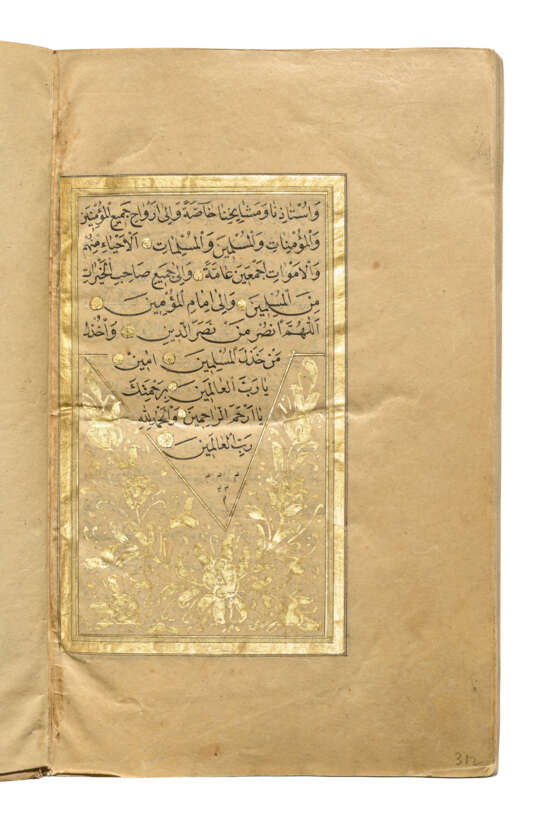 وَاُسْتَاذِنَا وَمَشَايِخِنَا خَاصَّةً وَاِلٰى اَرْوَاحِ جَمِيعِ الْمُؤْمِنِينَ
وَالْمُؤْمِنَاتِ وَالْمُسْلِمِينَ وَالْمُسْلِمَاتِ اَلْاَحْيَاءِ مِنْهُمْ
وَالْاَمْوَاتِ اَجْمَعِينَ عَامَّةً وَاِلٰى جَمِيعِ صَاحِبِ الْخَيْرَاتِ
مِنَ الْمُسْلِمِينَ وَاِلٰى اِمَامِ الْمُؤْمِنِينَ
اَللّٰهُمَّ انْصُرْ مَنْ نَصَرَ الدِّينَ وَاخْذُلْ
مَنْ خَذَلَ الْمُسْلِمِينَ اٰمِينَ
يَا رَبَّ الْعَالَمِينَ بِرَحْمَتِكَ
يَا اَرْحَمَ الرَّاحِمِينَ وَالْحَمْدُ لِلّٰهِ
رَبِّ الْعَالَمِينَ
م م م
م م
م
312